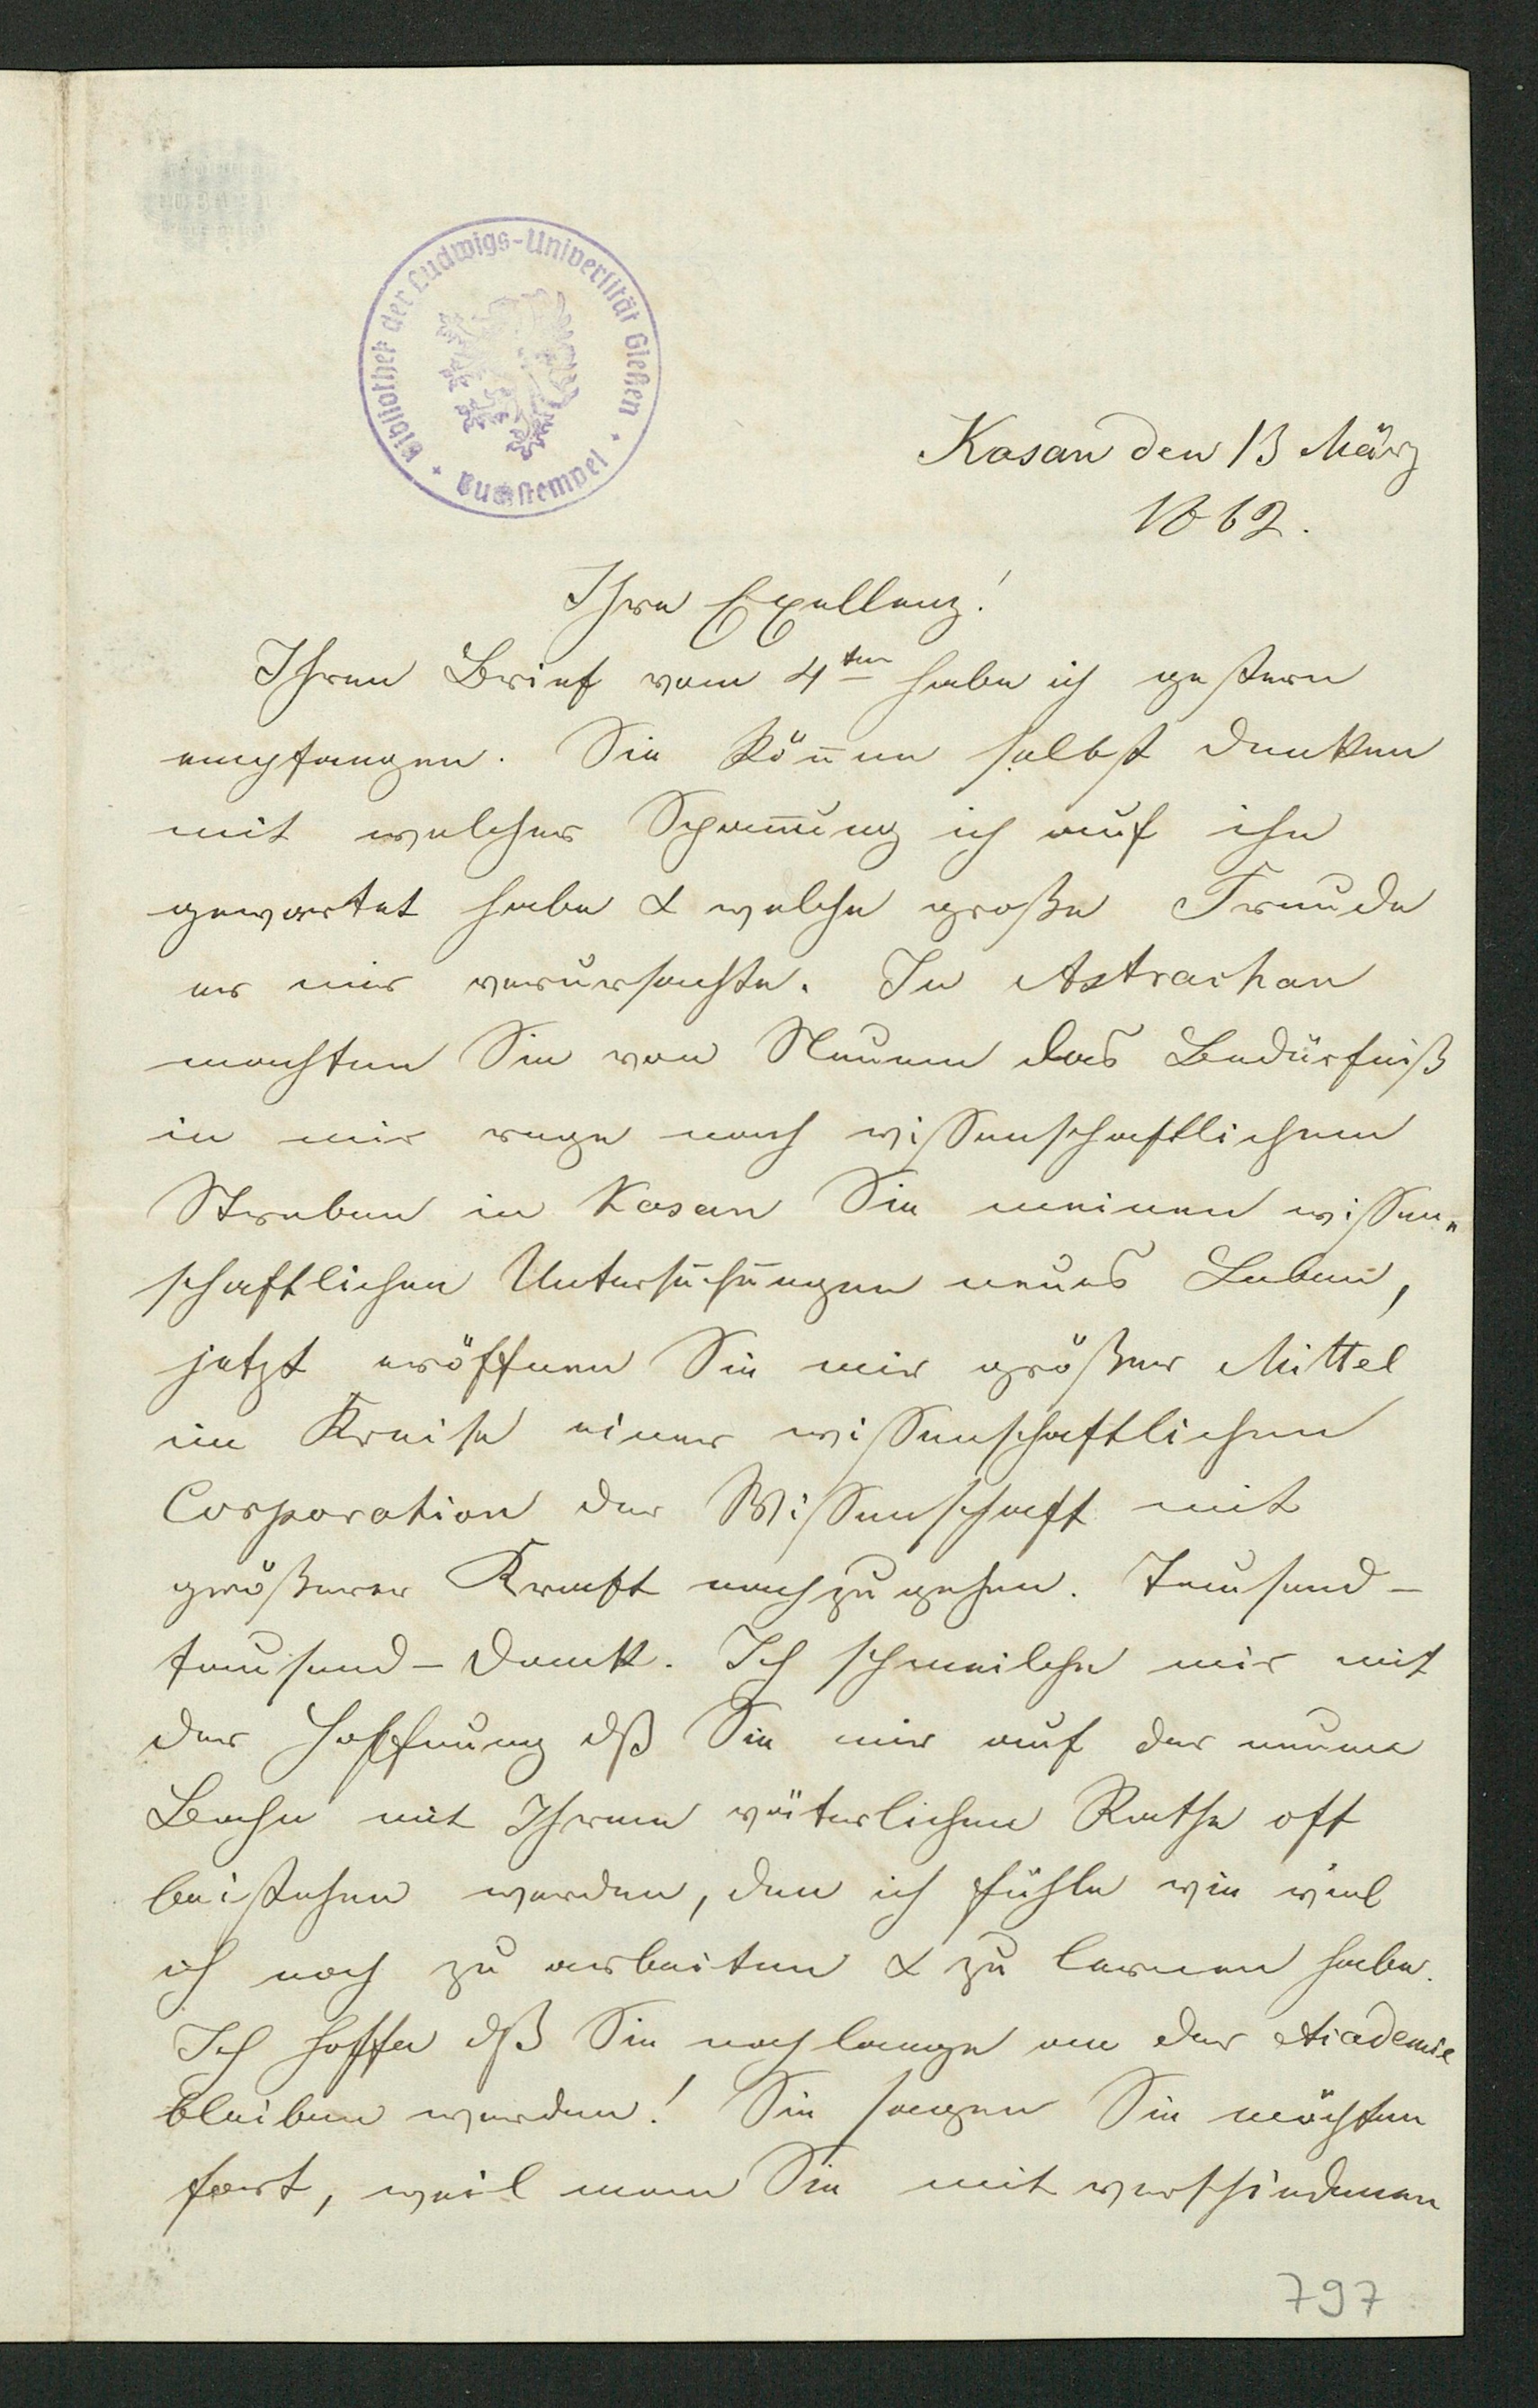 Bibliothek der Ludwigs-Universität Gießen
Buchstempel
Kasan den 13 März
1862.
Ihre Exellenz!
Ihren Brief vom 4ten habe ich gestern
empfangen. Sie kön̄en selbst denken
mit welcher Span̄ung ich auf ihn
gewartet habe & welche große Freude
er mir verursachte. In Astrachan
machten Sie von Neuem das Bedürfniß
in mir rege nach wissenschaftlichem
Streben in Kasan Sie meinen wissen„
schaftlichen Untersuchungen neues Leben,
jetzt eröffnen Sie mir größer Mittel
im Kreise einer wissenschaftlichen
Corporation der Wissenschaft mit
größerer Kraft nachzugehen. Tausend-
tausend-Dank. Ich schmeilche mir mit
der Hoffnung dß Sie mir auf der neuen
Bahn mit Ihrem väterlichen Rathe oft
beistehen werden, den ich fühle wie viel
ich noch zu arbeiten & zu lernen habe.
Ich hoffe dß Sie noch lange an der Academie
bleiben werden! Sie sagen Sie möchten
fort, weil man Sie mit verschiedenen
797